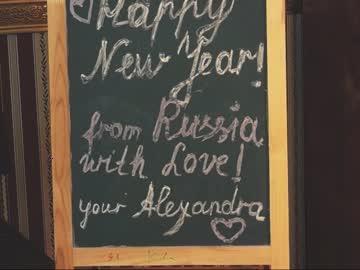 Happy
New Year!
from Russia
with Love!
your Alexandra